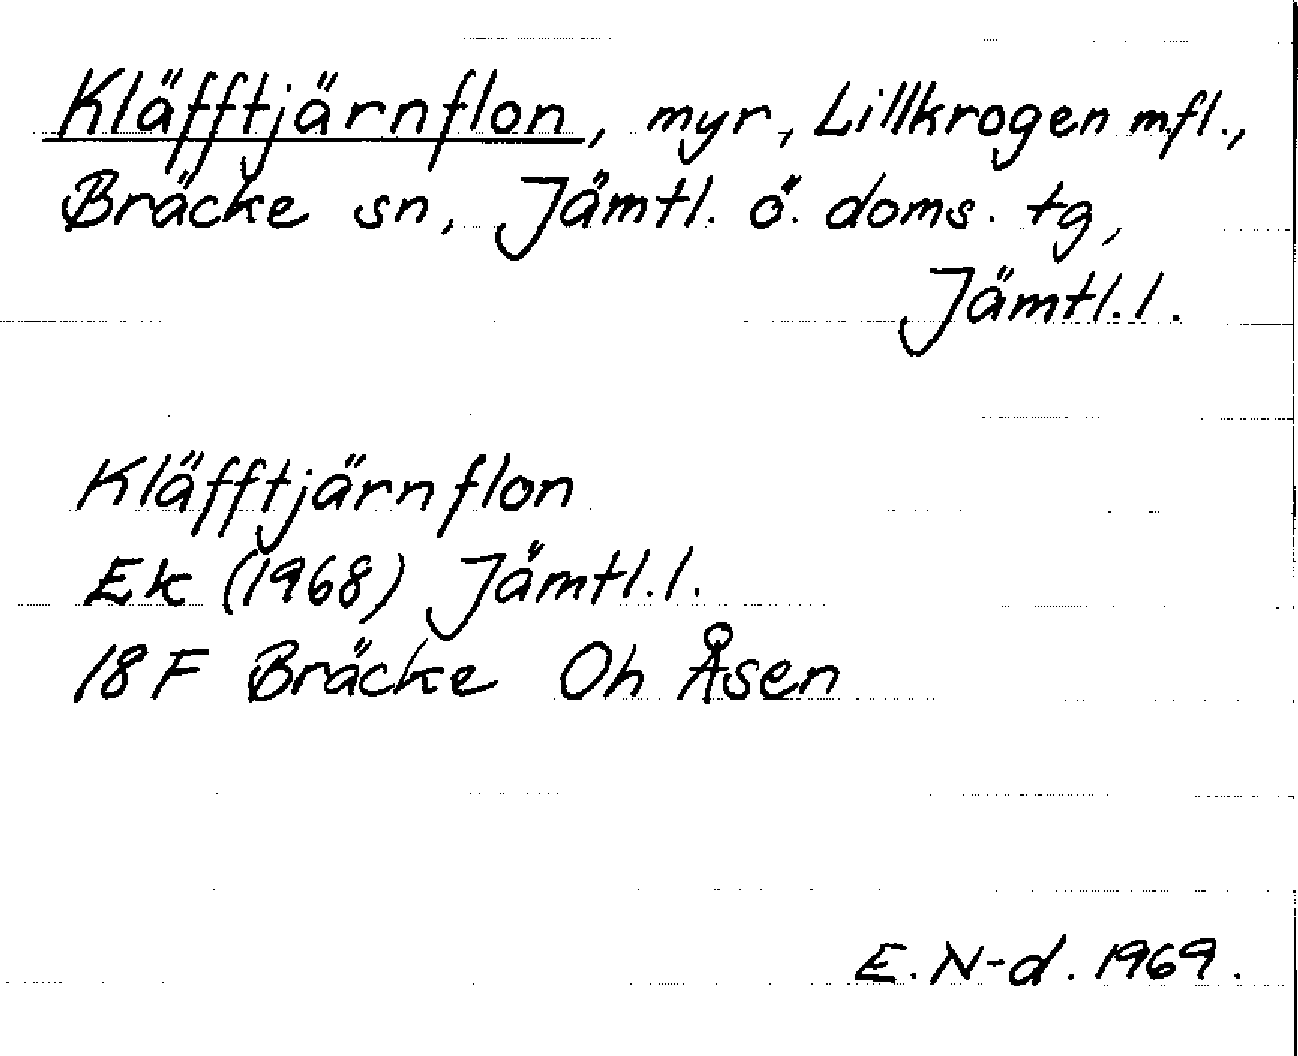 Kläfftjärnflon, myr, Lillkrogen mfl.,
Bräcke sn, Jämtl. ö. doms. tg,
Jämtl. l.
Kläfftjärnflon
Ek (1968) Jämtl. l.
18 F Bräcke Oh Åsen
E. N-d. 1969.